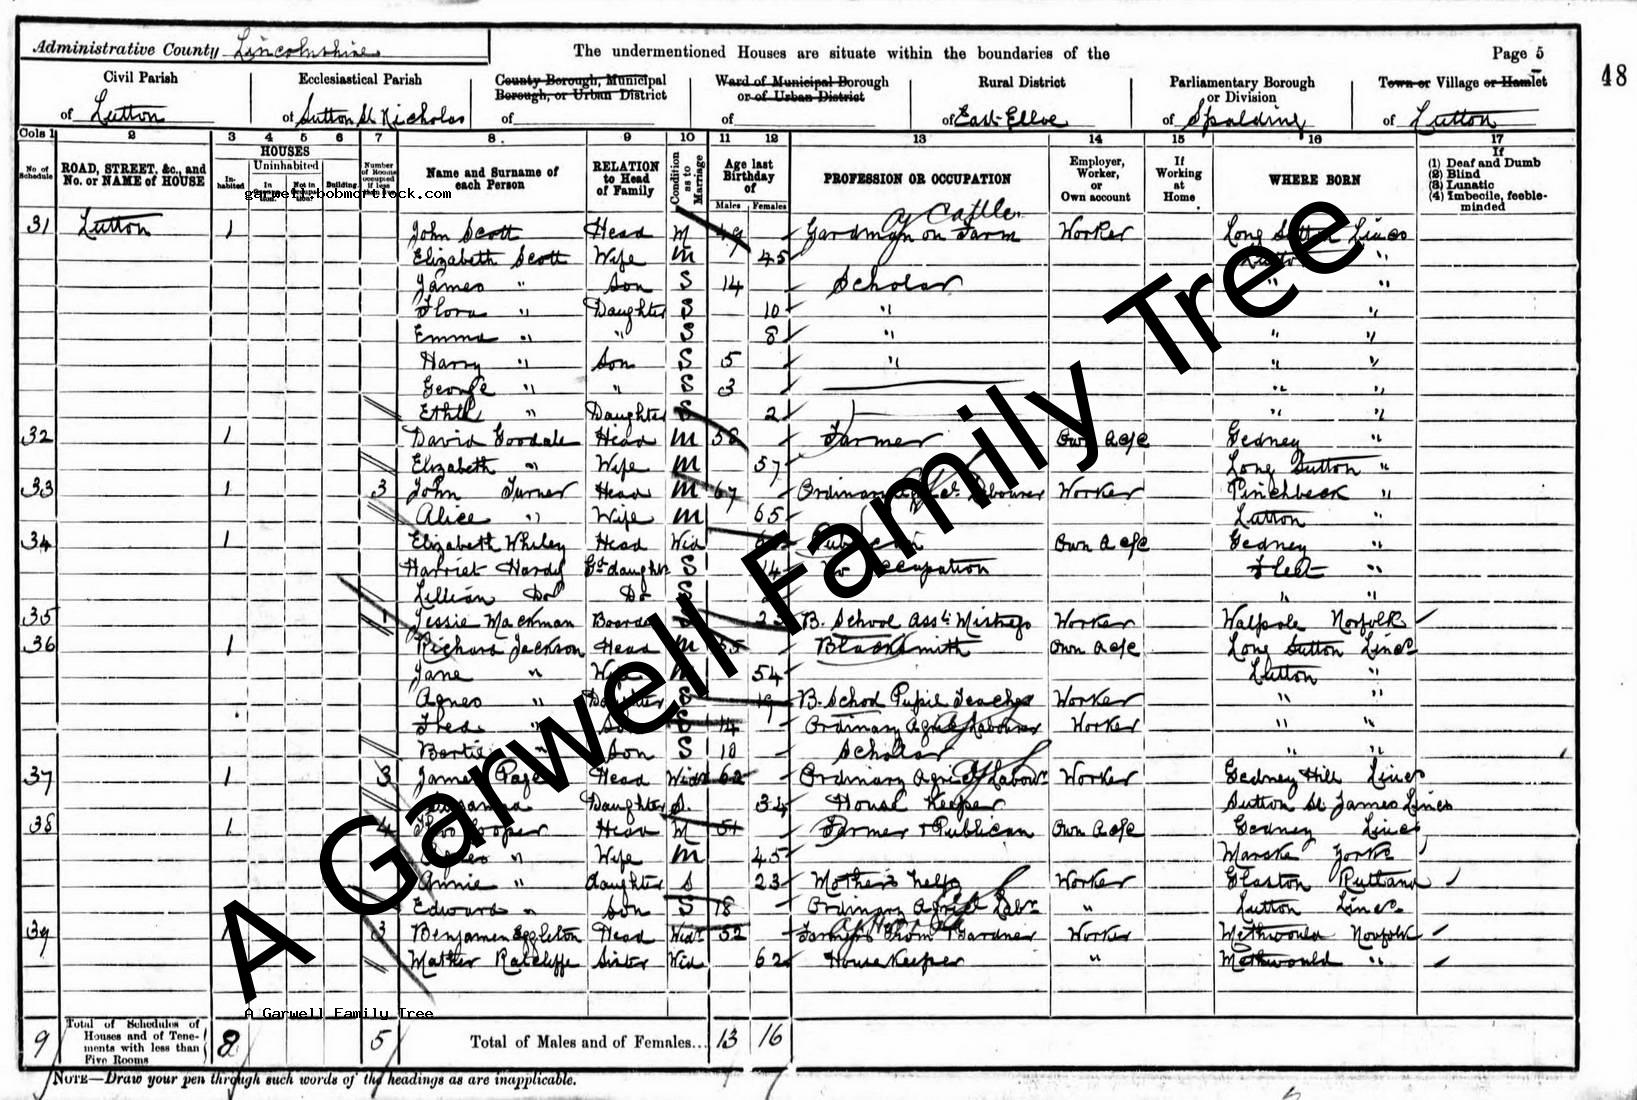 Administrative County Lincolnshire
The undermentioned Houses are situate within the boundaries of the
Page 5
48
Civil Parish of Lutton
Ecclesiastical Parish of Sutton St Nicholas
County Borough, Municipal Borough, or Urban District of
Ward of Municipal Borough or of Urban District of
Rural District of East Elloe
Parliamentary Borough or Division of Spalding
Town or Village or Hamlet of Lutton
Cols 1 2 3 4 5 6 7 8 9 10 11 12 13 14 15 16 17
No of Schedule
ROAD, STREET, &c., and No. or NAME of HOUSE
HOUSES
Inhabited
Uninhabited
Building
Number of Rooms occupied if less
Name and Surname of each Person
RELATION to Head of Family
Condition as to Marriage
Age last Birthday of
Males Females
PROFESSION OR OCCUPATION
Employer, Worker, or Own account
If Working at Home
WHERE BORN
If
(1) Deaf and Dumb
(2) Blind
(3) Lunatic
(4) Imbecile, feeble-minded
garwell.bobmortlock.com
of Cattle
31 Lutton 1 John Scott Head M 49 on Farm Worker Long Sutton Lincs
Elizabeth Scott Wife M 45 Lutton "
James " Son S 14 Scholar " "
Flora " Daughter S 10 " "
Emma " " S 8 " " "
Harry " Son S 5 " " "
George " " S 3 " "
Ethel " Daughter S 2 " "
32 1 David Goodale Head M 58 Farmer Own a/c Gedney "
Elizabeth " Wife M 57 Long Sutton "
33 1 3 John Turner Head M 67 Ordinary Labourer Worker Pinchbeck "
Alice " Wife M 65 Lutton "
34 1 Elizabeth Whiley Head Wid Own a/c Gedney "
Harriet Hardy Gd daughter S 14 No occupation Fleet "
Lillian Do Do S " "
35 1 Jessie Mackman Boarder S B. School Asst Mistress Worker Walpole Norfolk
36 1 Richard Jackson Head M 55 Blacksmith Own a/c Long Sutton Lincs
Jane " Wife M 54 Lutton "
Agnes " Daughter S 19 B. School Pupil Teacher Worker " "
Fred " Son S 14 Ordinary Agric Labourer Worker " "
Bertie " Son S 10 Scholar " "
37 1 3 James Page Head Widr 62 Ordinary Agric Labour Worker Gedney Hill Lincs
Daughter S. 34 House Keeper Sutton St James Lincs
38 1 4 Cooper Head M 51 Farmer & Publican Own a/c Gedney Lincs
" Wife M 45 Marske Yorks
Annie " daughter S 23 Mother's help Worker Glaston Rutland
Edward " Son S 18 Ordinary Agricl Labr " Lutton Lincs
39 1 3 Benjamen Eggleton Head Widr 52 Gardner Worker Methwould Norfolk
Mather Ratcliffe Sister Wid 62 HouseKeeper " Methwould "
A Garwell Family Tree
A Garwell Family Tree
9 Total of Schedules of Houses and of Tenements with less than Five Rooms 8 5 Total of Males and of Females... 13 16
NOTE—Draw your pen through such words of the headings as are inapplicable.